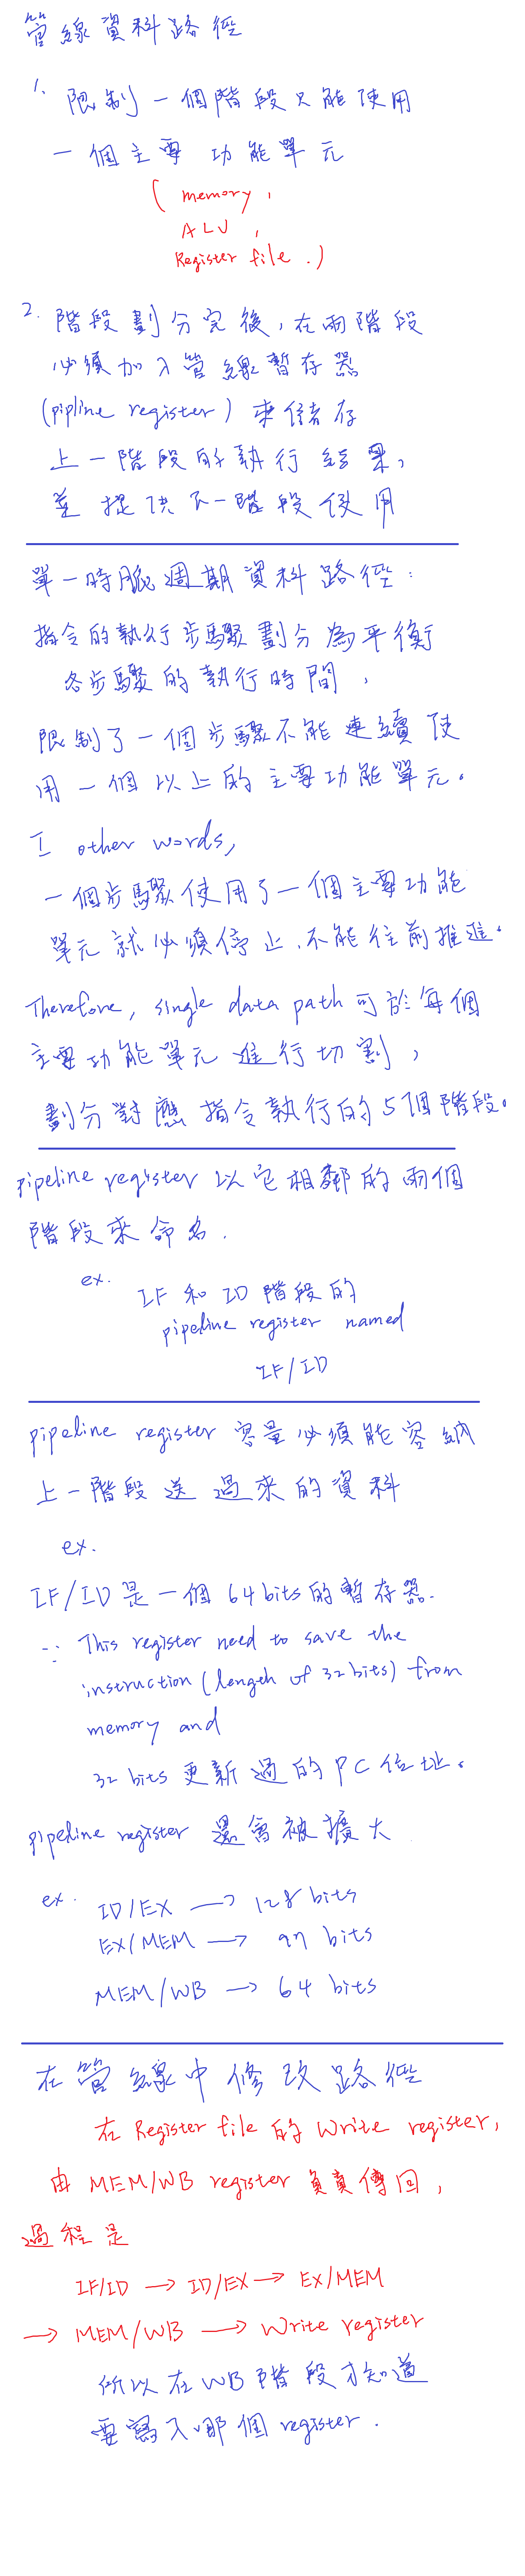 管線資料路徑
1. 限制一個階段只能使用
一個主要功能單元
(memory,
ALU,
Register file.)
2. 階段劃分完後,在兩階段
必須加入管線暫存器
(pipline register) 來儲存
上一階段的執行結果,
並提供下一階段使用
單一時脈週期資料路徑:
指令的執行步驟劃分為平衡
各步驟的執行時間,
限制了一個步驟不能連續使
用一個以上的主要功能單元。
I other words,
一個步驟使用了一個主要功能
單元就必須停止,不能往前推進。
Therefore, single data path 可於每個
主要功能單元進行切割,
劃分對應指令執行的5個階段。
pipeline register 以它相鄰的兩個
階段來命名.
ex. IF 和 ID 階段的
pipeline register named
IF/ID
pipeline register 容量必須能容納
上一階段送過來的資料
ex.
IF/ID 是一個 64 bits 的暫存器.
∵ This register need to save the
instruction (length of 32 bits) from
memory and
32 bits 更新過的 PC 位址。
pipeline register 還會被擴大
ex. ID/EX → 128 bits
EX/MEM → 97 bits
MEM/WB → 64 bits
在管線中修改路徑
在 Register file 的 Write register,
由 MEM/WB register 負責傳回,
過程是
IF/ID → ID/EX → EX/MEM
→ MEM/WB → Write register
所以在 WB 階段才知道
要寫入哪個 register.